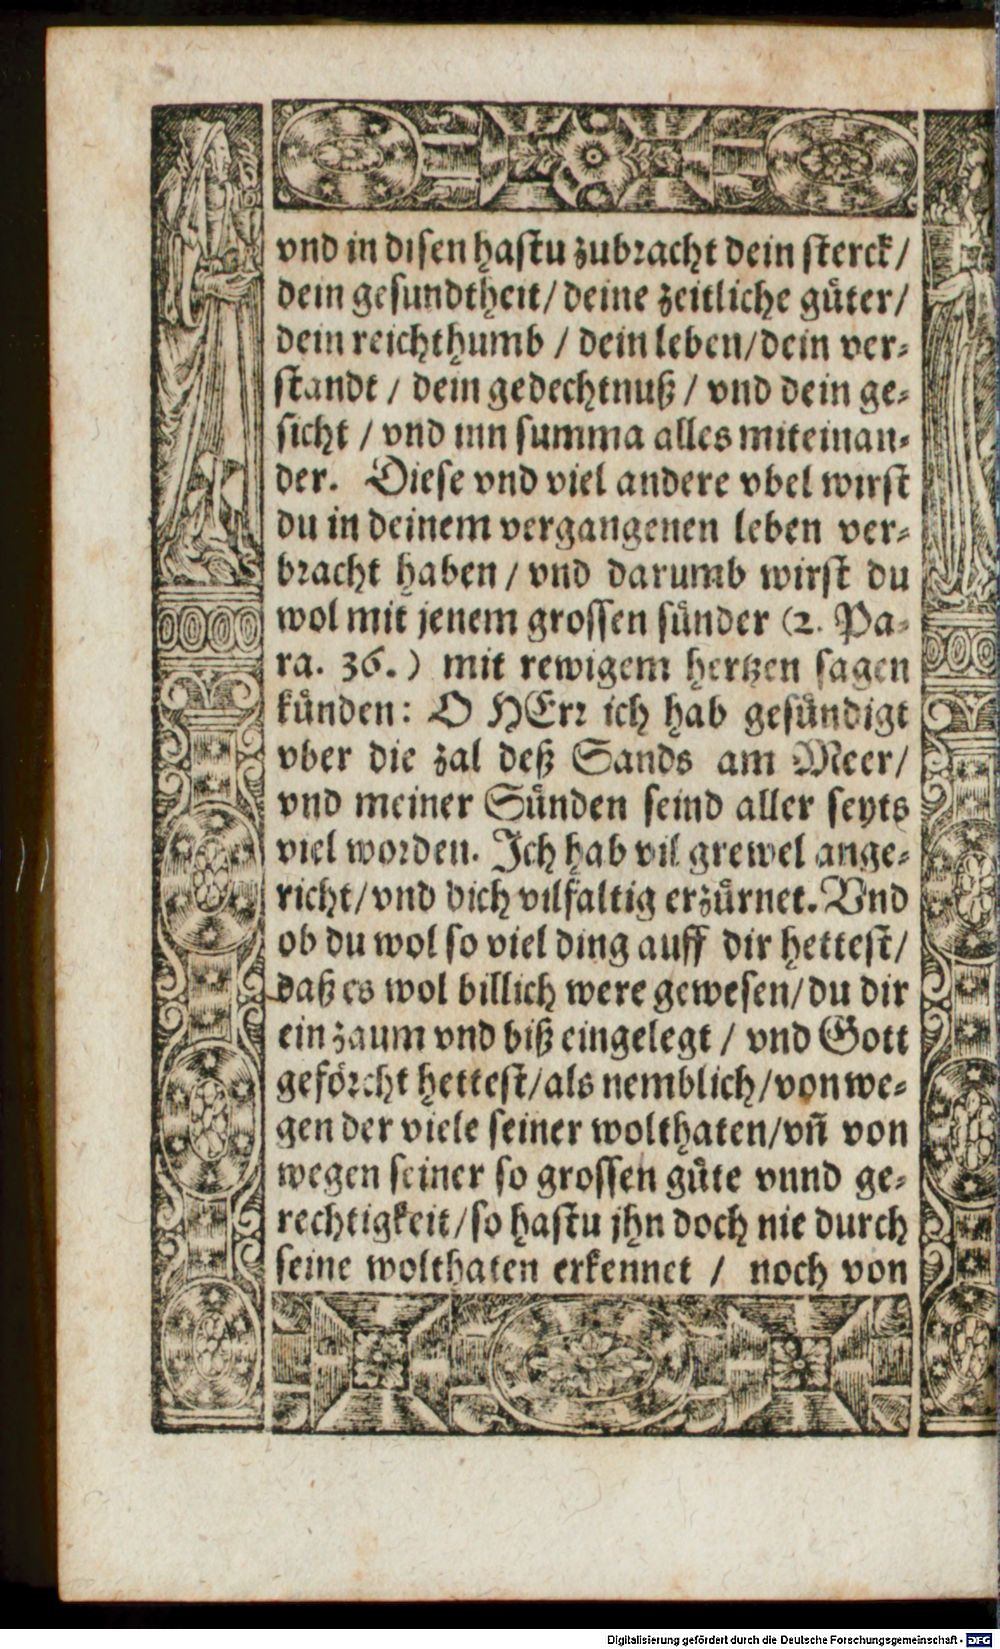 vnd in disen hastu zubracht dein sterck /
dein gesundtheit / deine zeitliche guͤter /
dein reichthumb / dein leben / dein ver-
standt / dein gedechtnuß / vnd dein ge-
sicht / vnd inn summa alles miteinan-
der. Diese vnd viel andere vbel wirst
du in deinem vergangenen leben ver-
bracht haben / vnd darumb wirst du
wol mit jenem grossen suͤnder (2. Pa-
ra. 36.) mit rewigem hertzen sagen
kuͤnden: O HErr ich hab gesuͤndigt
vber die zal deß Sands am Meer /
vnd meiner Suͤnden seind aller seyts
viel worden. Ich hab vil grewel ange-
richt / vnd dich vilfaltig erzuͤrnet. Vnd
ob du wol so viel ding auff dir hettest /
daß es wol billich were gewesen / du dir
ein zaum vnd biß eingelegt / vnd Gott
gefoͤrcht hettest / als nemblich / von we-
gen der viele seiner wolthaten / vñ von
wegen seiner so grossen guͤte vnnd ge-
rechtigkeit / so hastu jhn doch nie durch
seine wolthaten erkennet / noch von
Digitalisierung gefördert durch die Deutsche Forschungsgemeinschaft - DFG